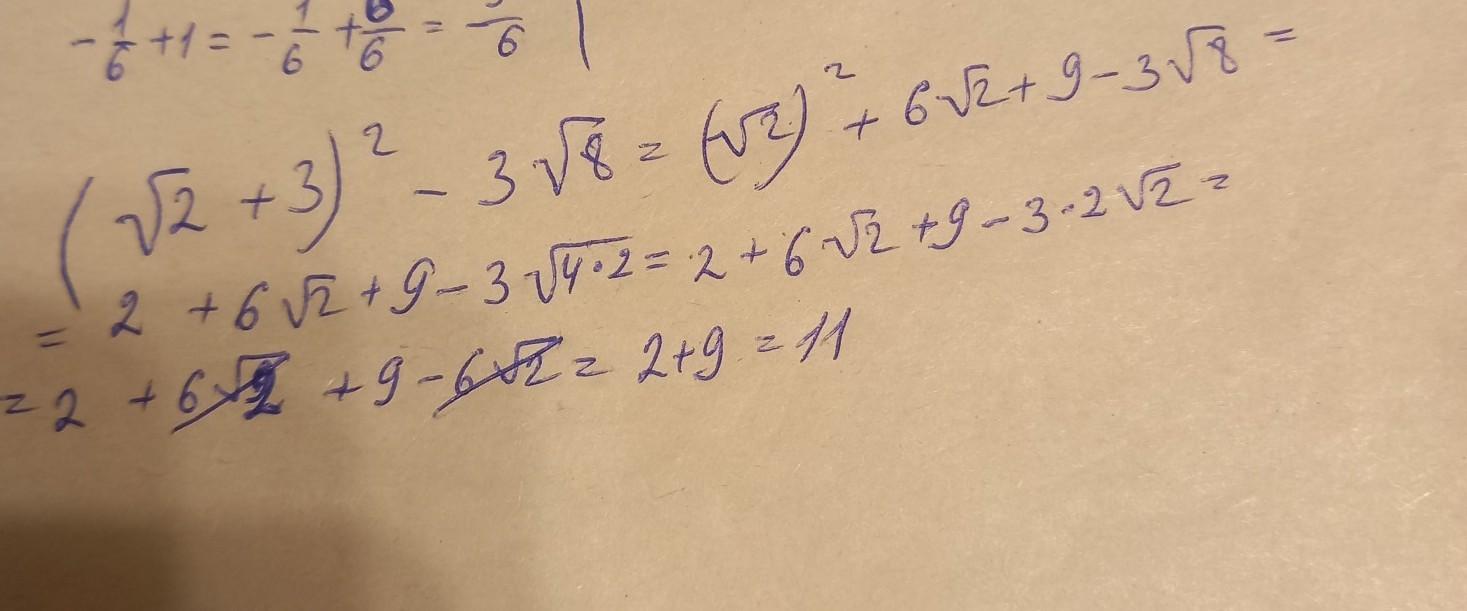 -1/6 + 1 = -1/6 + 6/6 = /6 |
(√2 + 3)² - 3√8 = (√2)² + 6√2 + 9 - 3√8 =
= 2 + 6√2 + 9 - 3√4·2 = 2 + 6√2 + 9 - 3·2√2 =
= 2 + 6√2 + 9 - 6√2 = 2 + 9 = 11